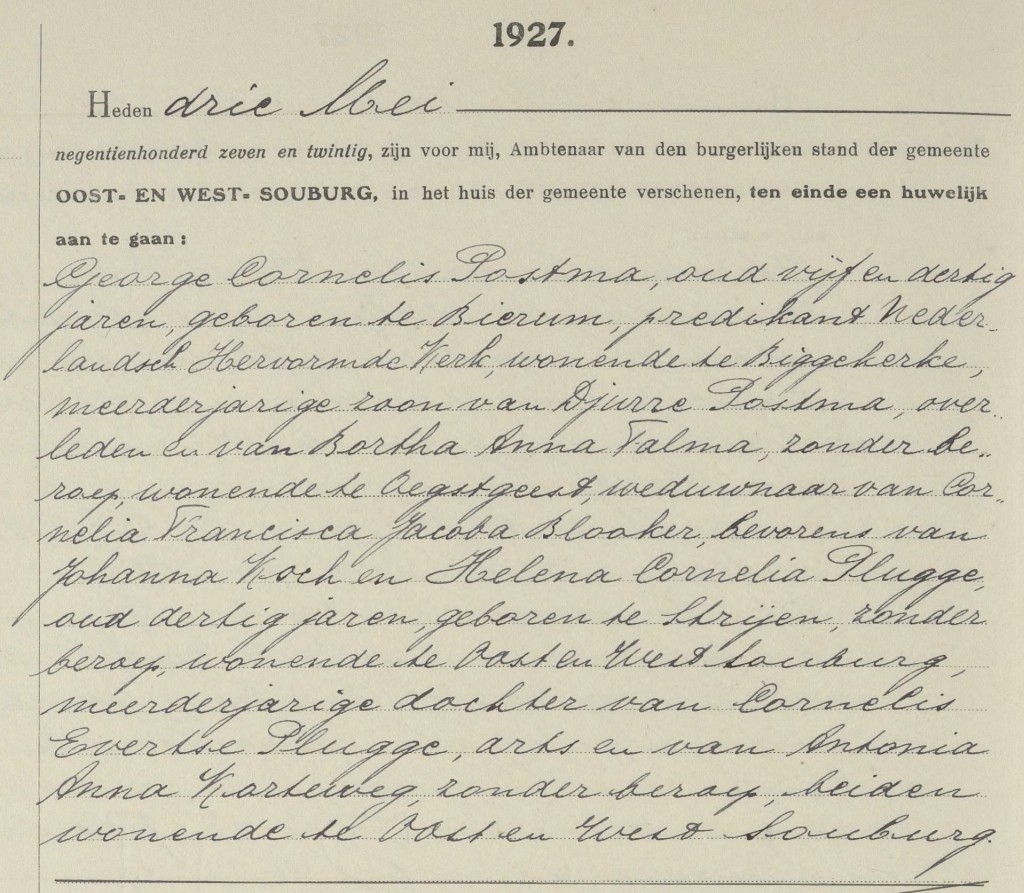 1927.
Heden drie Mei
negentienhonderd zeven en twintig, zijn voor mij, Ambtenaar van den burgerlijken stand der gemeente
OOST- EN WEST- SOUBURG, in het huis der gemeente verschenen, ten einde een huwelijk
aan te gaan:
George Cornelis Postma, oud vijf en dertig
jaren, geboren te Bierum, predikant Neder-
landsch Hervormde Kerk, wonende te Biggekerke,
meerderjarige zoon van Djurre Postma, over-
leden en van Bortha Anna Talma, zonder be-
roep, wonende te Oegstgeest, weduwnaar van Cor-
nelia Francisca Jacoba Blooker, bevorens van
Johanna Koch en Helena Cornelia Plugge,
oud dertig jaren, geboren te Strijen, zonder
beroep, wonende te Oost en West Souburg,
meerderjarige dochter van Cornelis
Evertse Plugge, arts en van Antonia
Anna Korteweg, zonder beroep, beiden
wonende te Oost en West Souburg.